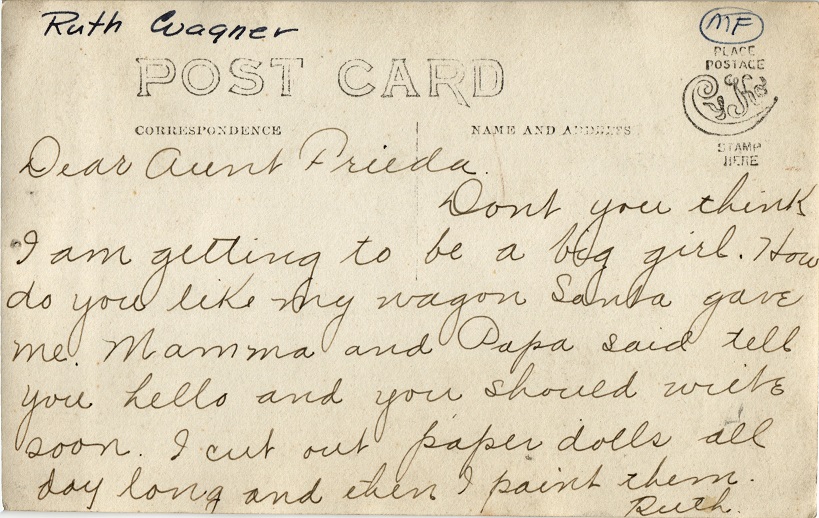 Ruth Wagner
MF
POST CARD
PLACE
POSTAGE
STAMP
HERE
CORRESPONDENCE
NAME AND ADDRESS
Dear Aunt Frieda.
Dont you think
I am getting to be a big girl. How
do you like my wagon Santa gave
me. Mamma and Papa said tell
you hello and you should write
soon. I cut out paper dolls all
day long and then I paint them.
Ruth.